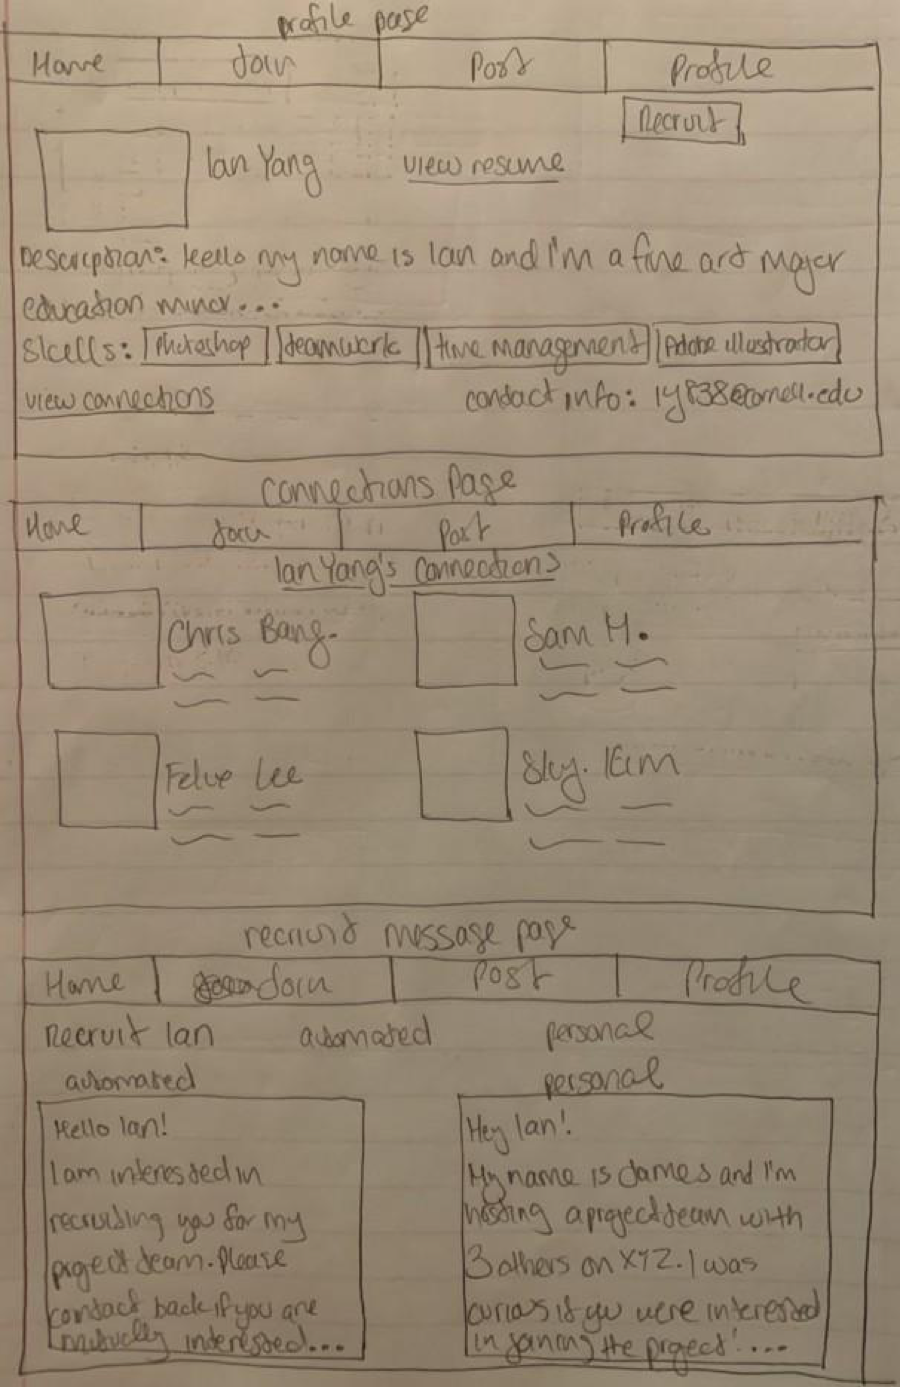 profile page
Home Join Post Profile
Recruit
Ian Yang view resume
Description: Hello my name is Ian and I'm a fine art major
education minor...
Skills: Photoshop teamwork time management Adobe illustrator
view connections contact info: iy838@cornell.edu
Connections Page
Home Join Post Profile
Ian Yang's Connections
Chris Bang. Sam H.
Lee Sky. Kim
recruit message page
Home Join Post Profile
Recruit Ian automated personal
automated personal
Hello Ian!
I am interested in
recruiting you for my
project team. Please
contact back if you are
mutually interested...
Hey Ian!
My name is James and I'm
hosting a project team with
3 others on XYZ. I was
curious if you were interested
in joining the project! ....